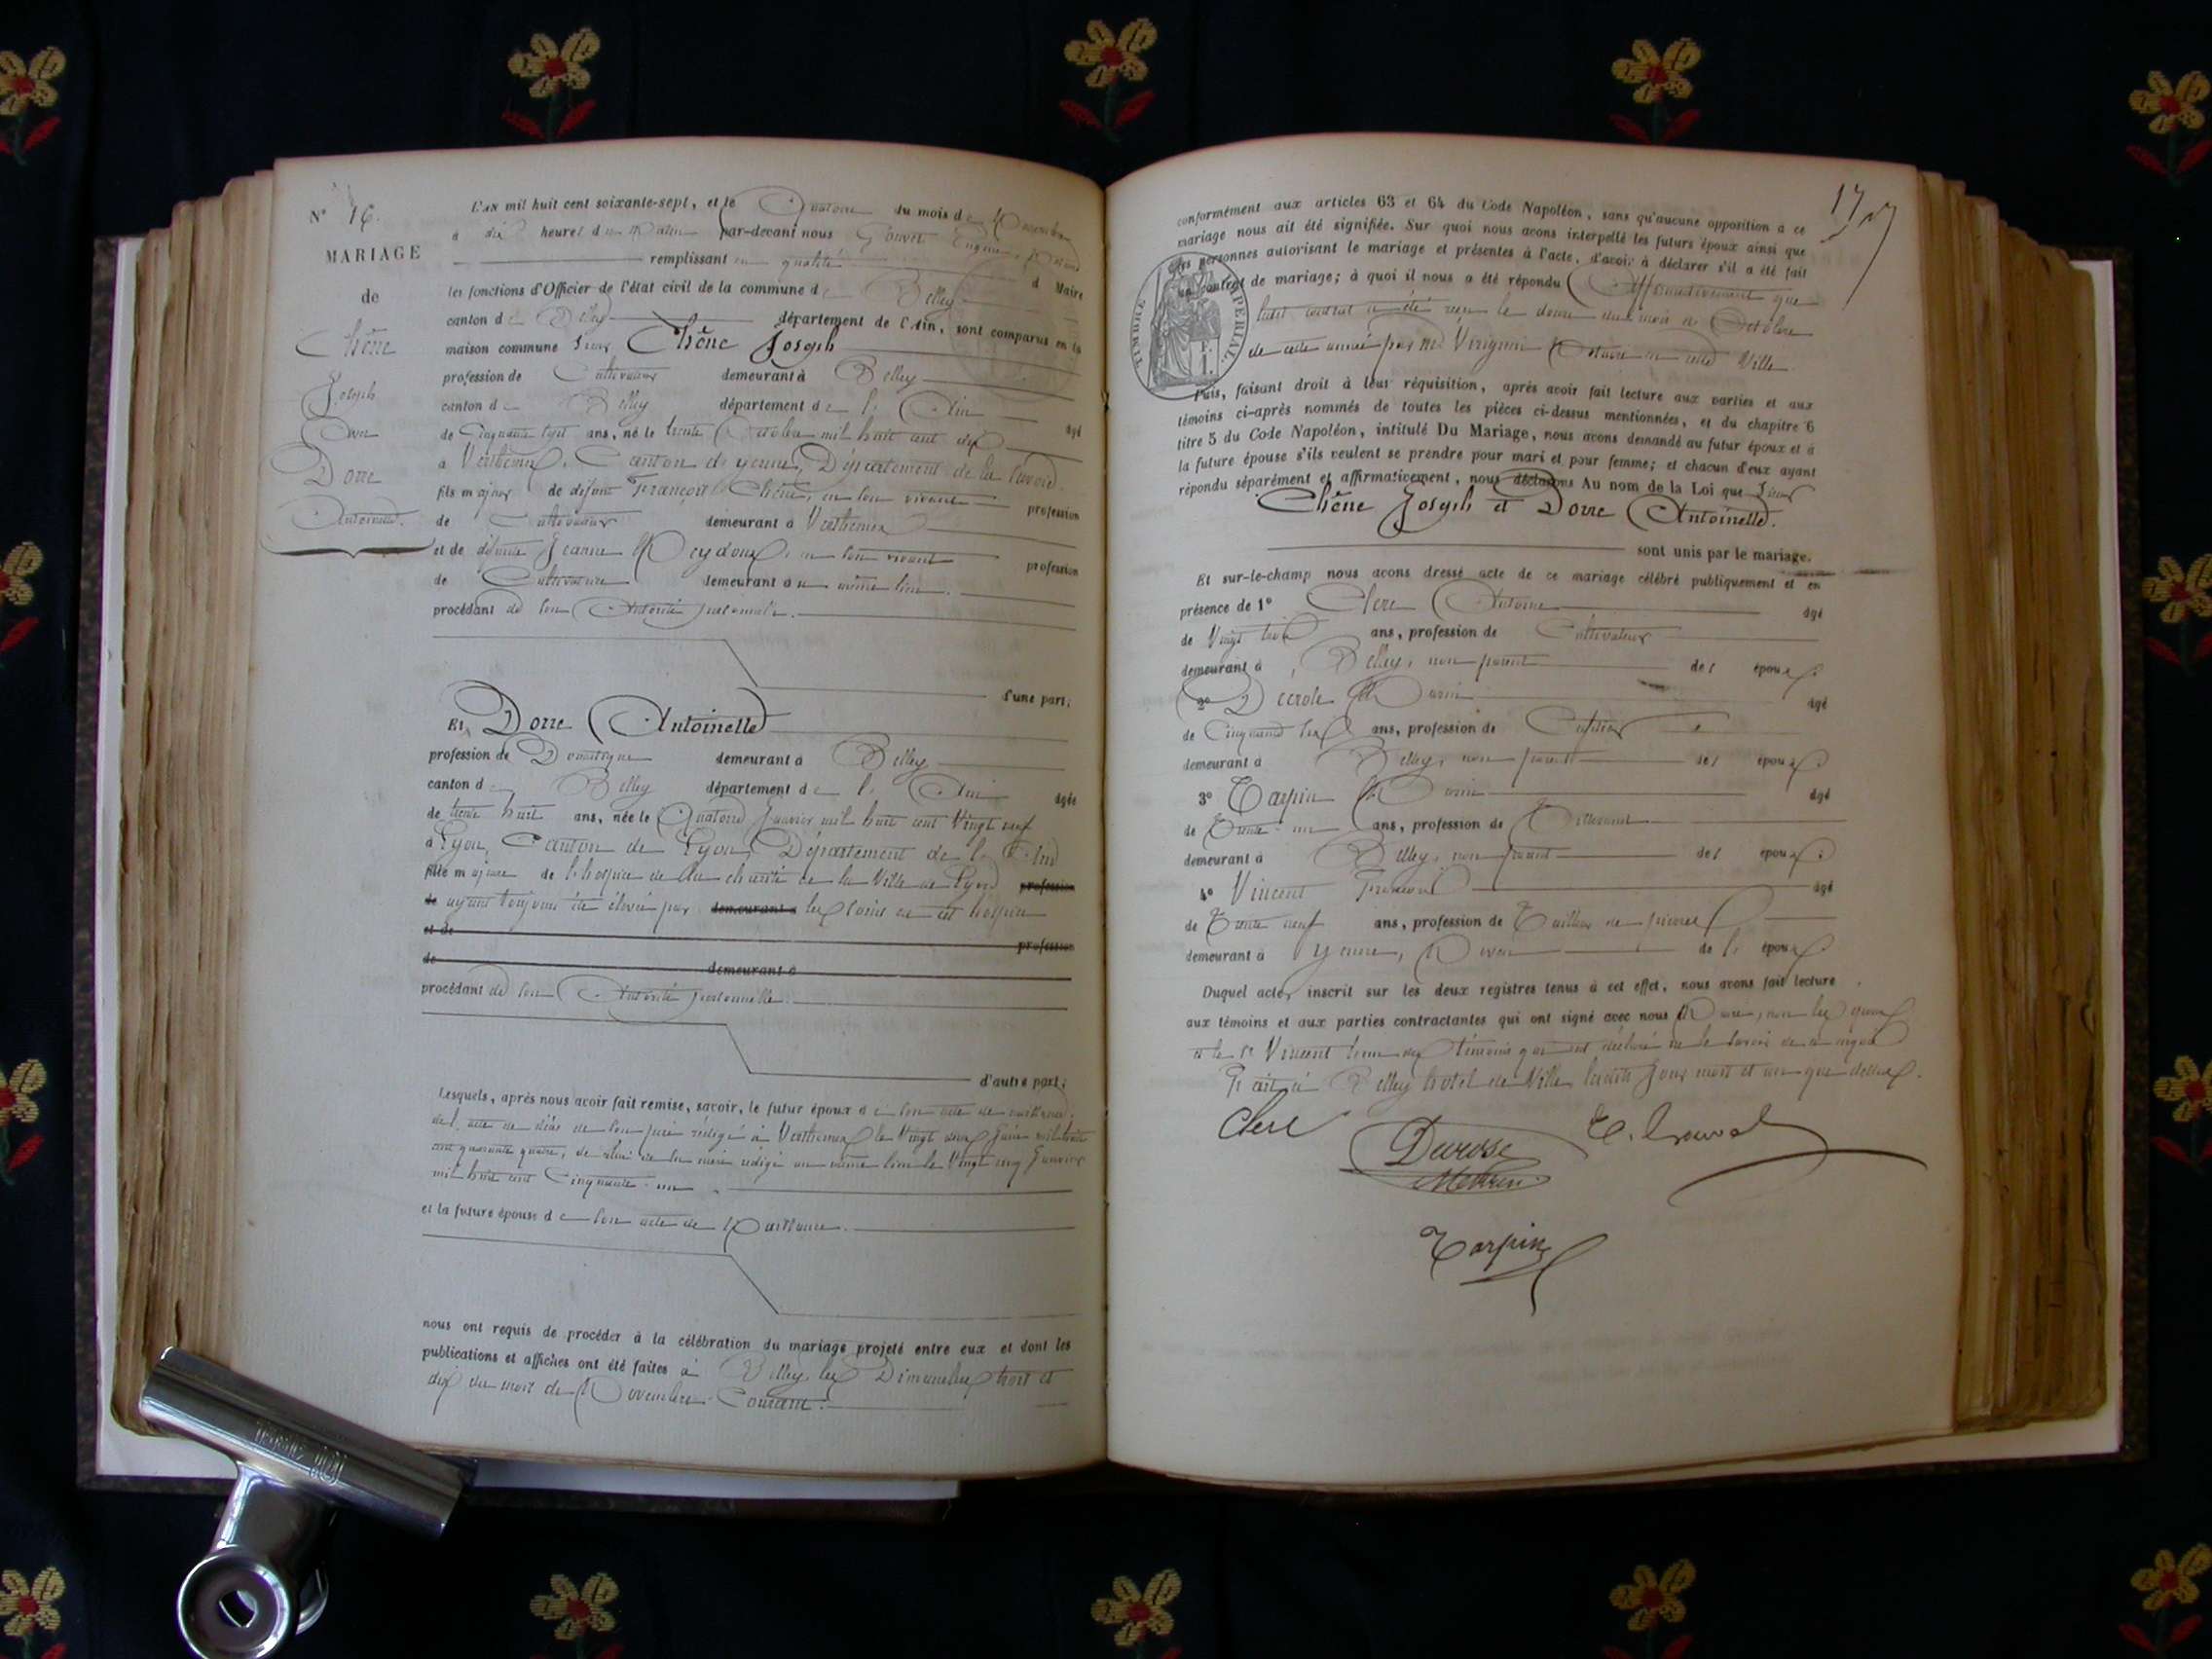 N° 16.
MARIAGE
de
Chêne
Joseph
Avec
Dorre
Antoinette.
L'AN mil huit cent soixante-sept, et le Quatorze du mois de Novembre
à dix heures du Matin par-devant nous
remplissant en qualité d Maire
les fonctions d'Officier de l'état civil de la commune de Belley
canton de Belley département de l'Ain, sont comparus en la
maison commune Sieur Chêne Joseph
profession de Cultivateur demeurant à Belley
canton de Belley département de l' Ain âgé
de Cinquante sept ans, né le trente Octobre mil huit cent dix
à Verthemex, Canton de Yenne, Département de la Savoie.
fils majeur de défunt François Chêne, en son vivant profession
de Cultivateur demeurant à Verthemex
et de défunte Jeanne en son vivant profession
de Cultivateur demeurant au même lieu.
procédant de son Autorité personnelle.
d'une part;
Et Dorre Antoinette
profession de Domestique demeurant à Belley
canton de Belley département de l' Ain âgée
de trente huit ans, née le Quatorze Janvier mil huit cent Vingt neuf
à Lyon, Canton de Lyon, Département de
fille majeure de l'hospice de la charité de la Ville de Lyon profession
de ayant toujours été élevée par demeurant à les soins de cet hospice
et de profession
de demeurant à
procédant de son Autorité personnelle.
d'autre part;
Lesquels, après nous avoir fait remise, savoir, le futur époux de son acte de naissance,
de l'acte de décès de son père rédigé à Verthemex le Vingt deux mil huit
cent quarante quatre, de celui de sa mère rédigé au même lieu le Vingt cinq Janvier
mil huit cent Cinquante un.
et la future épouse de son acte de Naissance.
nous ont requis de procéder à la célébration du mariage projeté entre eux et dont les
publications et affiches ont été faites à Belley les Dimanches trois et
dix du mois de Novembre Courant.
17
conformément aux articles 63 et 64 du Code Napoléon, sans qu'aucune opposition à ce
mariage nous ait été signifiée. Sur quoi nous avons interpellé les futurs époux ainsi que
les personnes autorisant le mariage et présentes à l'acte, d'avoir à déclarer s'il a été fait
un contrat de mariage; à quoi il nous a été répondu Affirmativement que
TIMBRE IMPERIAL
ledit contrat a été reçu le douze du mois d' Octobre
de cette année par Me Notaire en cette Ville
Puis, faisant droit à leur réquisition, après avoir fait lecture aux parties et aux
témoins ci-après nommés de toutes les pièces ci-dessus mentionnées, et du chapitre 6
titre 5 du Code Napoléon, intitulé Du Mariage, nous avons demandé au futur époux et à
la future épouse s'ils veulent se prendre pour mari et pour femme; et chacun d'eux ayant
répondu séparément et affirmativement, nous déclarons Au nom de la Loi que Sieur
Chêne Joseph et Dorre Antoinette.
sont unis par le mariage.
Et sur-le-champ nous avons dressé acte de ce mariage célébré publiquement et en
présence de 1° Clerc Antoine âgé
de Vingt trois ans, profession de Cultivateur
demeurant à Belley, non parent des époux.
2° âgé
de Cinquante ans, profession de
demeurant à Belley, non parent des époux
3° Tarpin Marin âgé
de Trente un ans, profession de
demeurant à Belley, non parent des époux.
4° Vincent François âgé
de Trente neuf ans, profession de Tailleur de pierres
demeurant à Yenne, Neveu de l' époux
Duquel acte, inscrit sur les deux registres tenus à cet effet, nous avons fait lecture
aux témoins et aux parties contractantes qui ont signé avec nous Maire, non les époux
et le Sr Vincent l'un des témoins qui ont déclaré ne le savoir de ce requis
Fait à Belley hotel de Ville lesdits jour mois et an que dessus.
Clerc
Tarpin